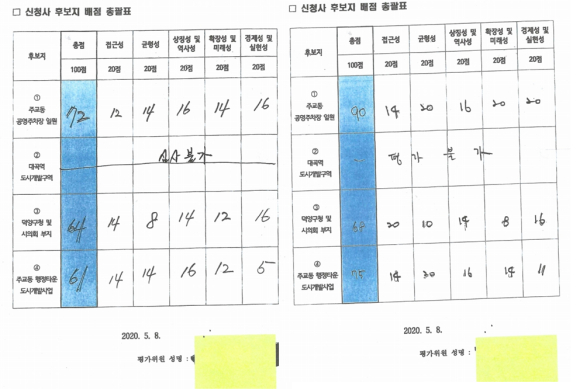 □ 신청사 후보지 배점 총괄표
후보지 총점 접근성 균형성 상징성 및 역사성 확장성 및 미래성 경제성 및 실현성
100점 20점 20점 20점 20점 20점
① 주교동 공영주차장 일원 72 12 14 16 14 16
② 대곡역 도시개발구역 심사불가
③ 덕양구청 및 시의회 부지 64 14 8 14 12 16
④ 주교동 행정타운 도시개발사업 61 14 14 16 12 5
2020. 5. 8.
평가위원 성명 :
□ 신청사 후보지 배점 총괄표
후보지 총점 접근성 균형성 상징성 및 역사성 확장성 및 미래성 경제성 및 실현성
100점 20점 20점 20점 20점 20점
① 주교동 공영주차장 일원 90 14 20 16 20 20
② 대곡역 도시개발구역 평가 불가
③ 덕양구청 및 시의회 부지 68 20 10 14 8 16
④ 주교동 행정타운 도시개발사업 14 20 16 14 11
2020. 5. 8.
평가위원 성명 :